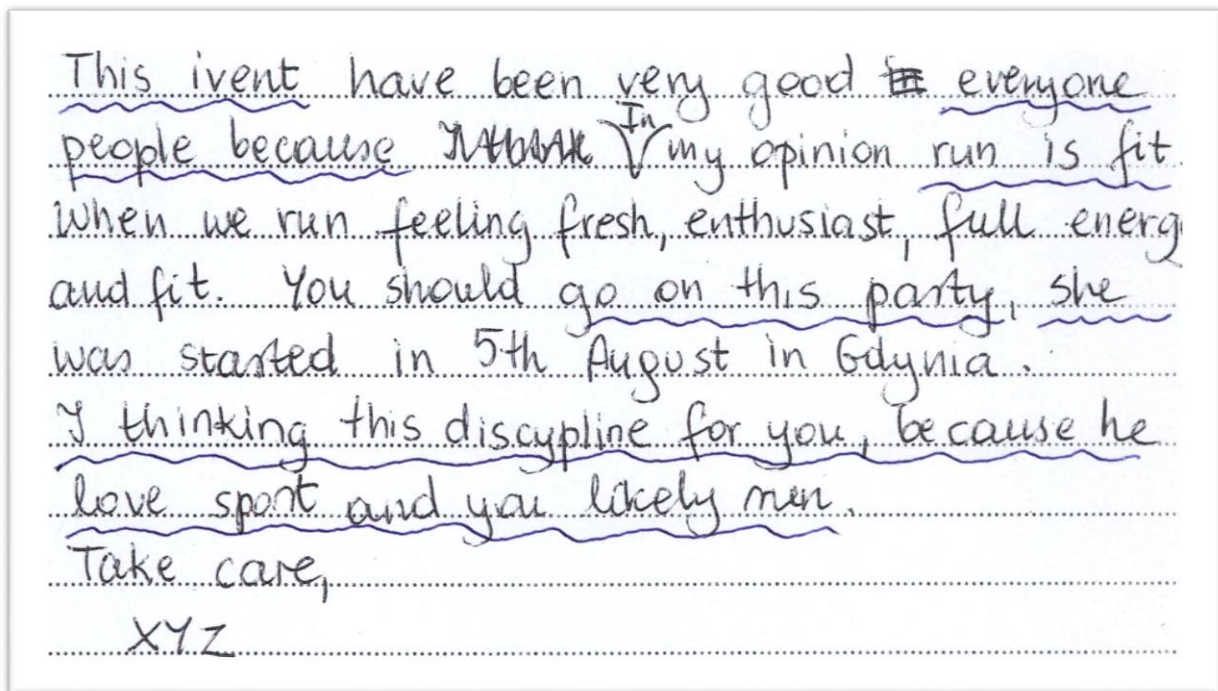 This ivent have been very good everyone
people because In my opinion run is fit
When we run feeling fresh, enthusiast, full energ
and fit. You should go on this party, she
was started in 5th August in Gdynia.
I thinking this discypline for you, because he
love sport and you likely run.
Take care,
XYZ